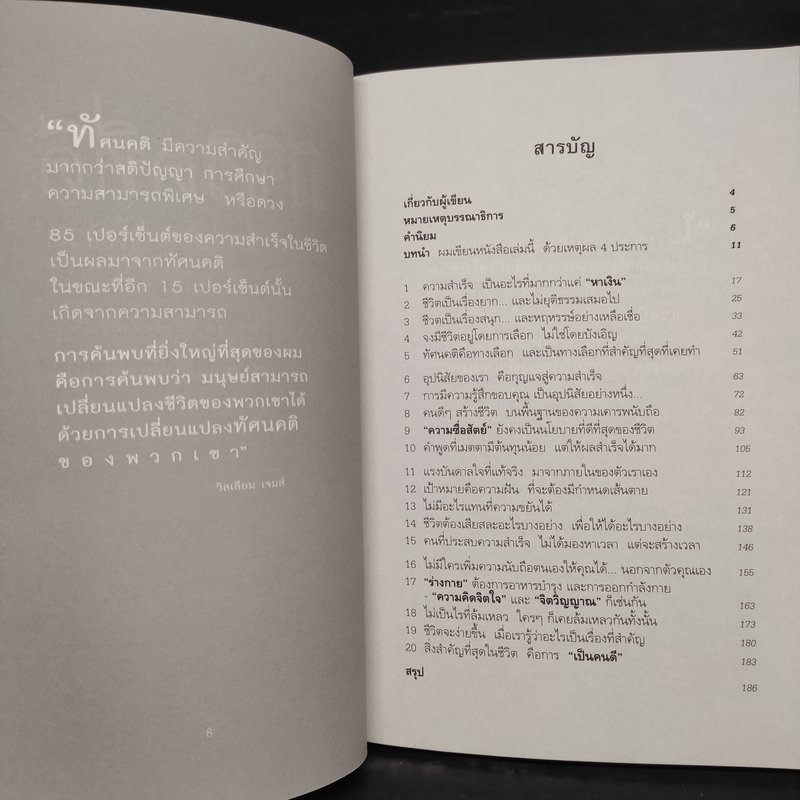 “ทัศนคติ มีความสำคัญ
มากกว่าสติปัญญา การศึกษา
ความสามารถพิเศษ หรือดวง
85 เปอร์เซ็นต์ของความสำเร็จในชีวิต
เป็นผลมาจากทัศนคติ
ในขณะที่อีก 15 เปอร์เซ็นต์นั้น
เกิดจากความสามารถ
การค้นพบที่ยิ่งใหญ่ที่สุดของผม
คือการค้นพบว่า มนุษย์สามารถ
เปลี่ยนแปลงชีวิตของพวกเขาได้
ด้วยการเปลี่ยนแปลงทัศนคติ
ของพวกเขา”
วิลเลียม เจมส์
8
สารบัญ
เกี่ยวกับผู้เขียน 4
หมายเหตุบรรณาธิการ 5
คำนิยม 6
บทนำ ผมเขียนหนังสือเล่มนี้ ด้วยเหตุผล 4 ประการ 11
1 ความสำเร็จ เป็นอะไรที่มากกว่าแค่ “หาเงิน” 17
2 ชีวิตเป็นเรื่องยาก... และไม่ยุติธรรมเสมอไป 25
3 ชีวิตเป็นเรื่องสนุก... และหฤหรรษ์อย่างเหลือเชื่อ 33
4 จงมีชีวิตอยู่โดยการเลือก ไม่ใช่โดยบังเอิญ 42
5 ทัศนคติคือทางเลือก และเป็นทางเลือกที่สำคัญที่สุดที่เคยทำ 51
6 อุปนิสัยของเรา คือกุญแจสู่ความสำเร็จ 63
7 การมีความรู้สึกขอบคุณ เป็นอุปนิสัยอย่างหนึ่ง... 72
8 คนดีๆ สร้างชีวิต บนพื้นฐานของความเคารพนับถือ 82
9 “ความซื่อสัตย์” ยังคงเป็นนโยบายที่ดีที่สุดของชีวิต 93
10 คำพูดที่เมตตามีต้นทุนน้อย แต่ให้ผลสำเร็จได้มาก 105
11 แรงบันดาลใจที่แท้จริง มาจากภายในของตัวเราเอง 112
12 เป้าหมายคือความฝัน ที่จะต้องมีกำหนดเส้นตาย 121
13 ไม่มีอะไรแทนที่ความขยันได้ 131
14 ชีวิตต้องเสียสละอะไรบางอย่าง เพื่อให้ได้อะไรบางอย่าง 138
15 คนที่ประสบความสำเร็จ ไม่ได้มองหาเวลา แต่จะสร้างเวลา 146
16 ไม่มีใครเพิ่มความนับถือตนเองให้คุณได้... นอกจากตัวคุณเอง 155
17 “ร่างกาย” ต้องการอาหารบำรุง และการออกกำลังกาย
- “ความคิดจิตใจ” และ “จิตวิญญาณ” ก็เช่นกัน 163
18 ไม่เป็นไรที่ล้มเหลว ใครๆ ก็เคยล้มเหลวกันทั้งนั้น 173
19 ชีวิตจะง่ายขึ้น เมื่อเรารู้ว่าอะไรเป็นเรื่องที่สำคัญ 180
20 สิ่งสำคัญที่สุดในชีวิต คือการ “เป็นคนดี” 183
สรุป 186